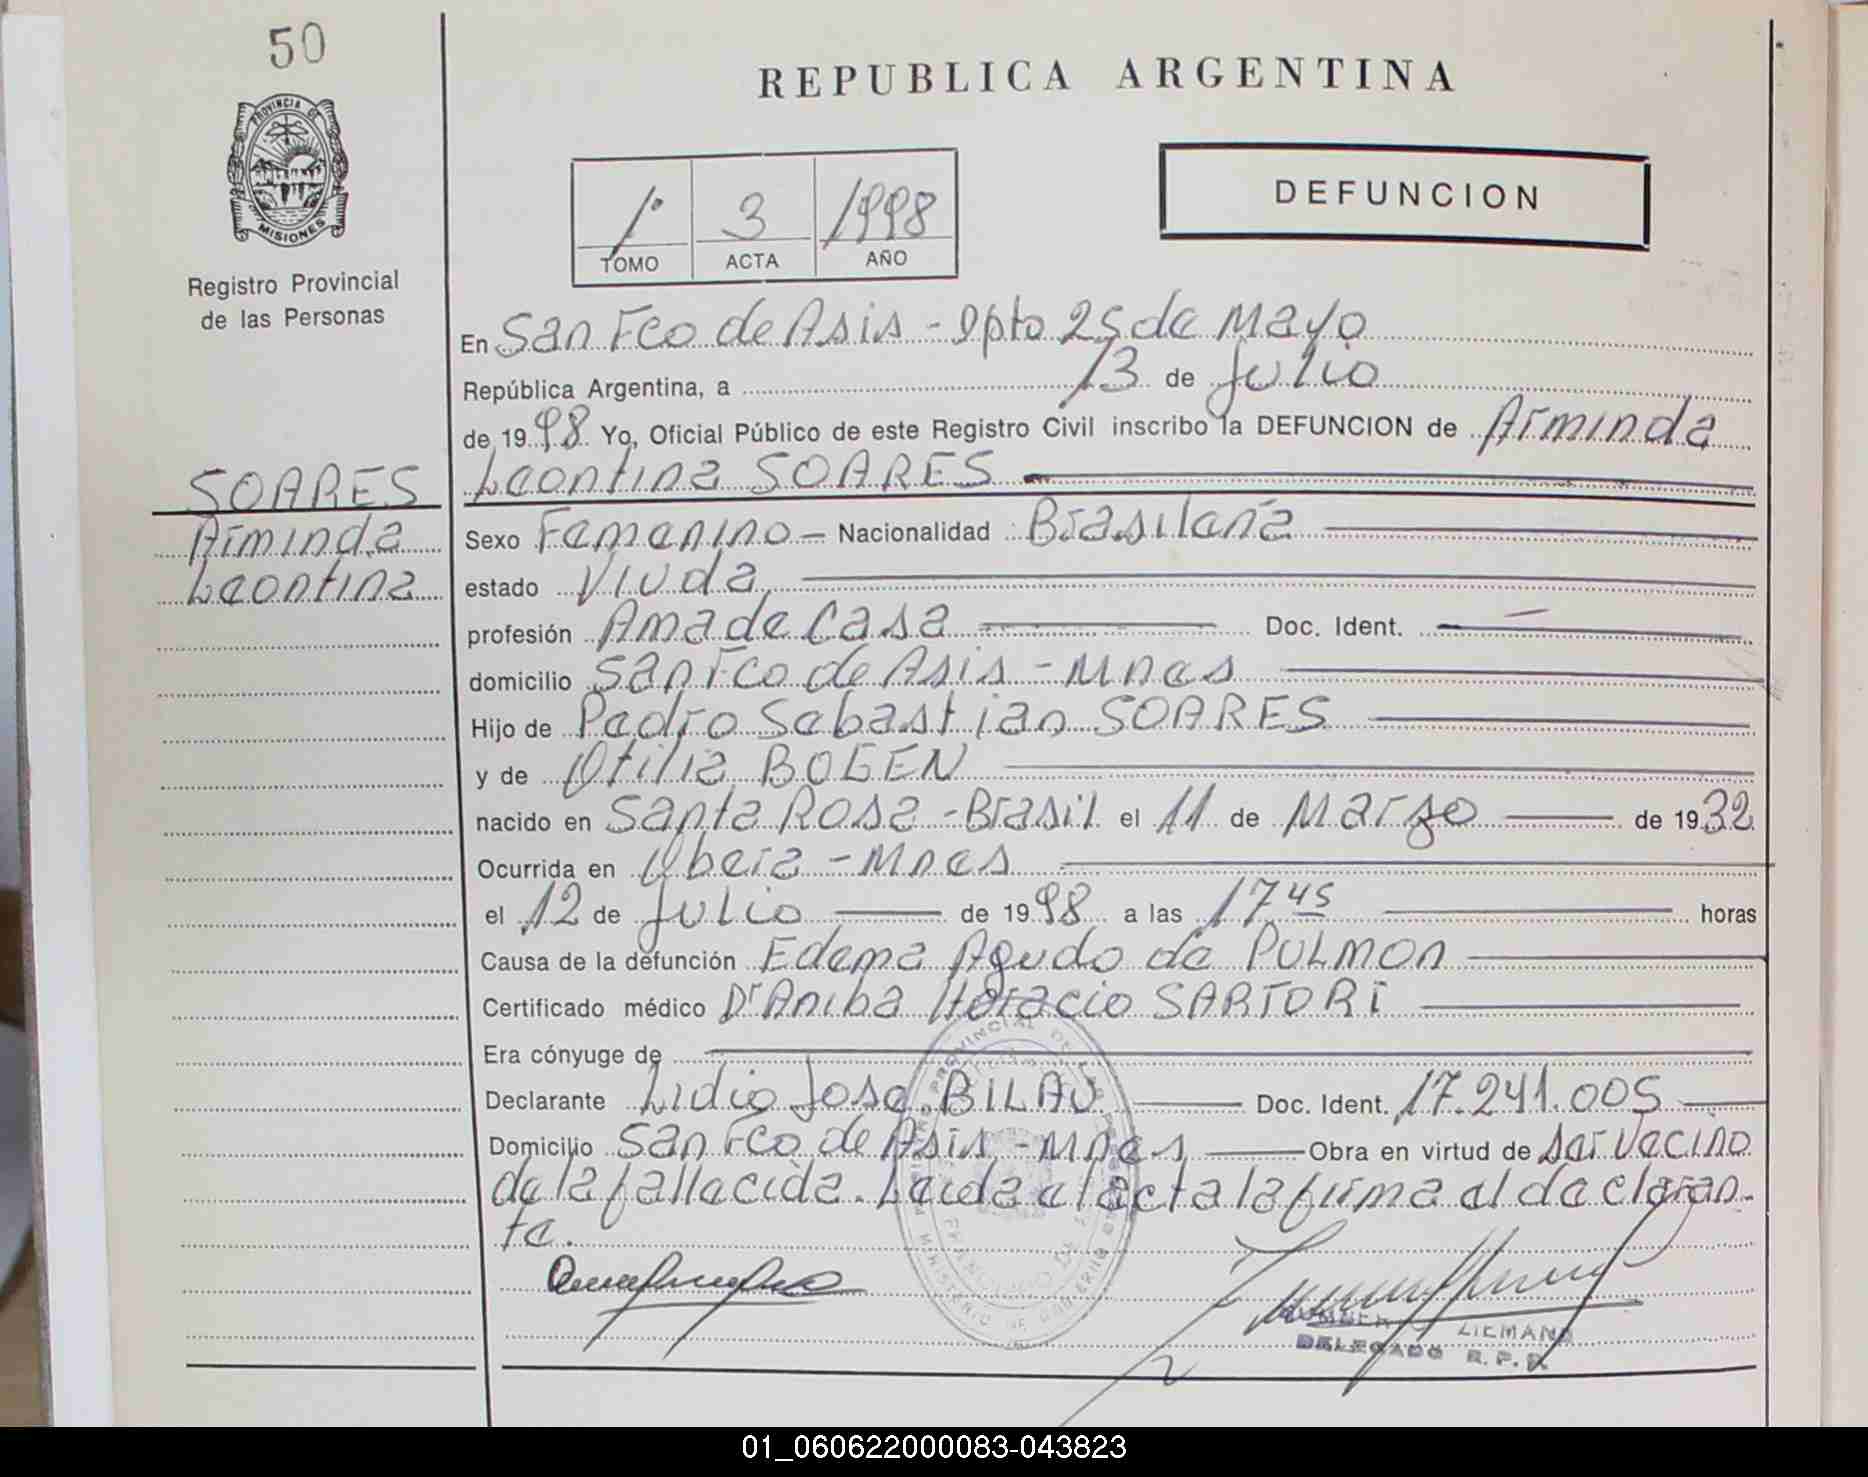 50
PROVINCIA DE
MISIONES
Registro Provincial
de las Personas
REPUBLICA ARGENTINA
1º 3 1998
TOMO ACTA AÑO
DEFUNCION
En San Fco de Asis - Dpto 25 de Mayo
República Argentina, a 13 de Julio
de 1998 Yo, Oficial Público de este Registro Civil inscribo la DEFUNCION de Arminda
Leontina SOARES
SOARES
Arminda
Leontina
Sexo Femenino - Nacionalidad Brasileña
estado Viuda
profesión Ama de Casa Doc. Ident. -
domicilio San Fco de Asis - Mnes
Hijo de Pedro Sebastian SOARES
y de Otilia BOGEN
nacido en Santa Rosa - Brasil el 11 de Marzo de 1932
Ocurrida en Obera - Mnes
el 12 de Julio de 1998 a las 17 45 horas
Causa de la defunción Edema Agudo de PULMON
Certificado médico Dr Aniba Horacio SARTORI
Era cónyuge de
Declarante Lidio Jose BILAU Doc. Ident. 17.241.005
Domicilio San Fco de Asis - Mnes Obra en virtud de ser vecino
de la fallecida. Leida el acta la firma el declaran-
te.
LIEMANN
DELEGADO R. P. P.
01_060622000083-043823